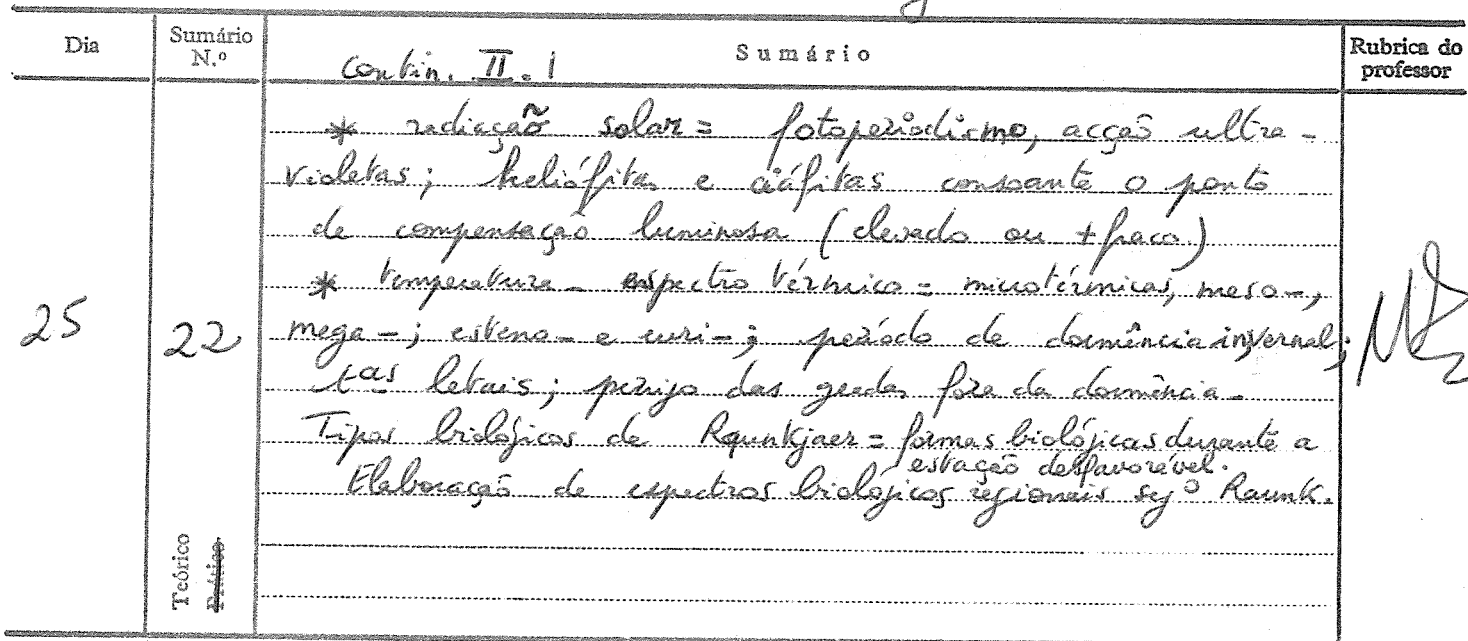 Dia
Sumário N.º
Sumário
Rubrica do professor
Contin. II. 1
* radiação solar = fotoperiodismo, acção ultra-
violetas; heliófitas e ciáfitas consoante o ponto
de compensação luminosa (elevado ou + fraco)
* temperatura - espectro térmico = microtérmicas, meso-,
mega-; esteno- e euri-; período de dormência invernal;
tas letais; perigo das geadas fora da dormência.
Tipos biológicos de Raunkjaer = formas biológicas durante a
estação desfavorável.
Elaboração de espectros biológicos regionais segº Raunk.
25
22
Teórico
Prático